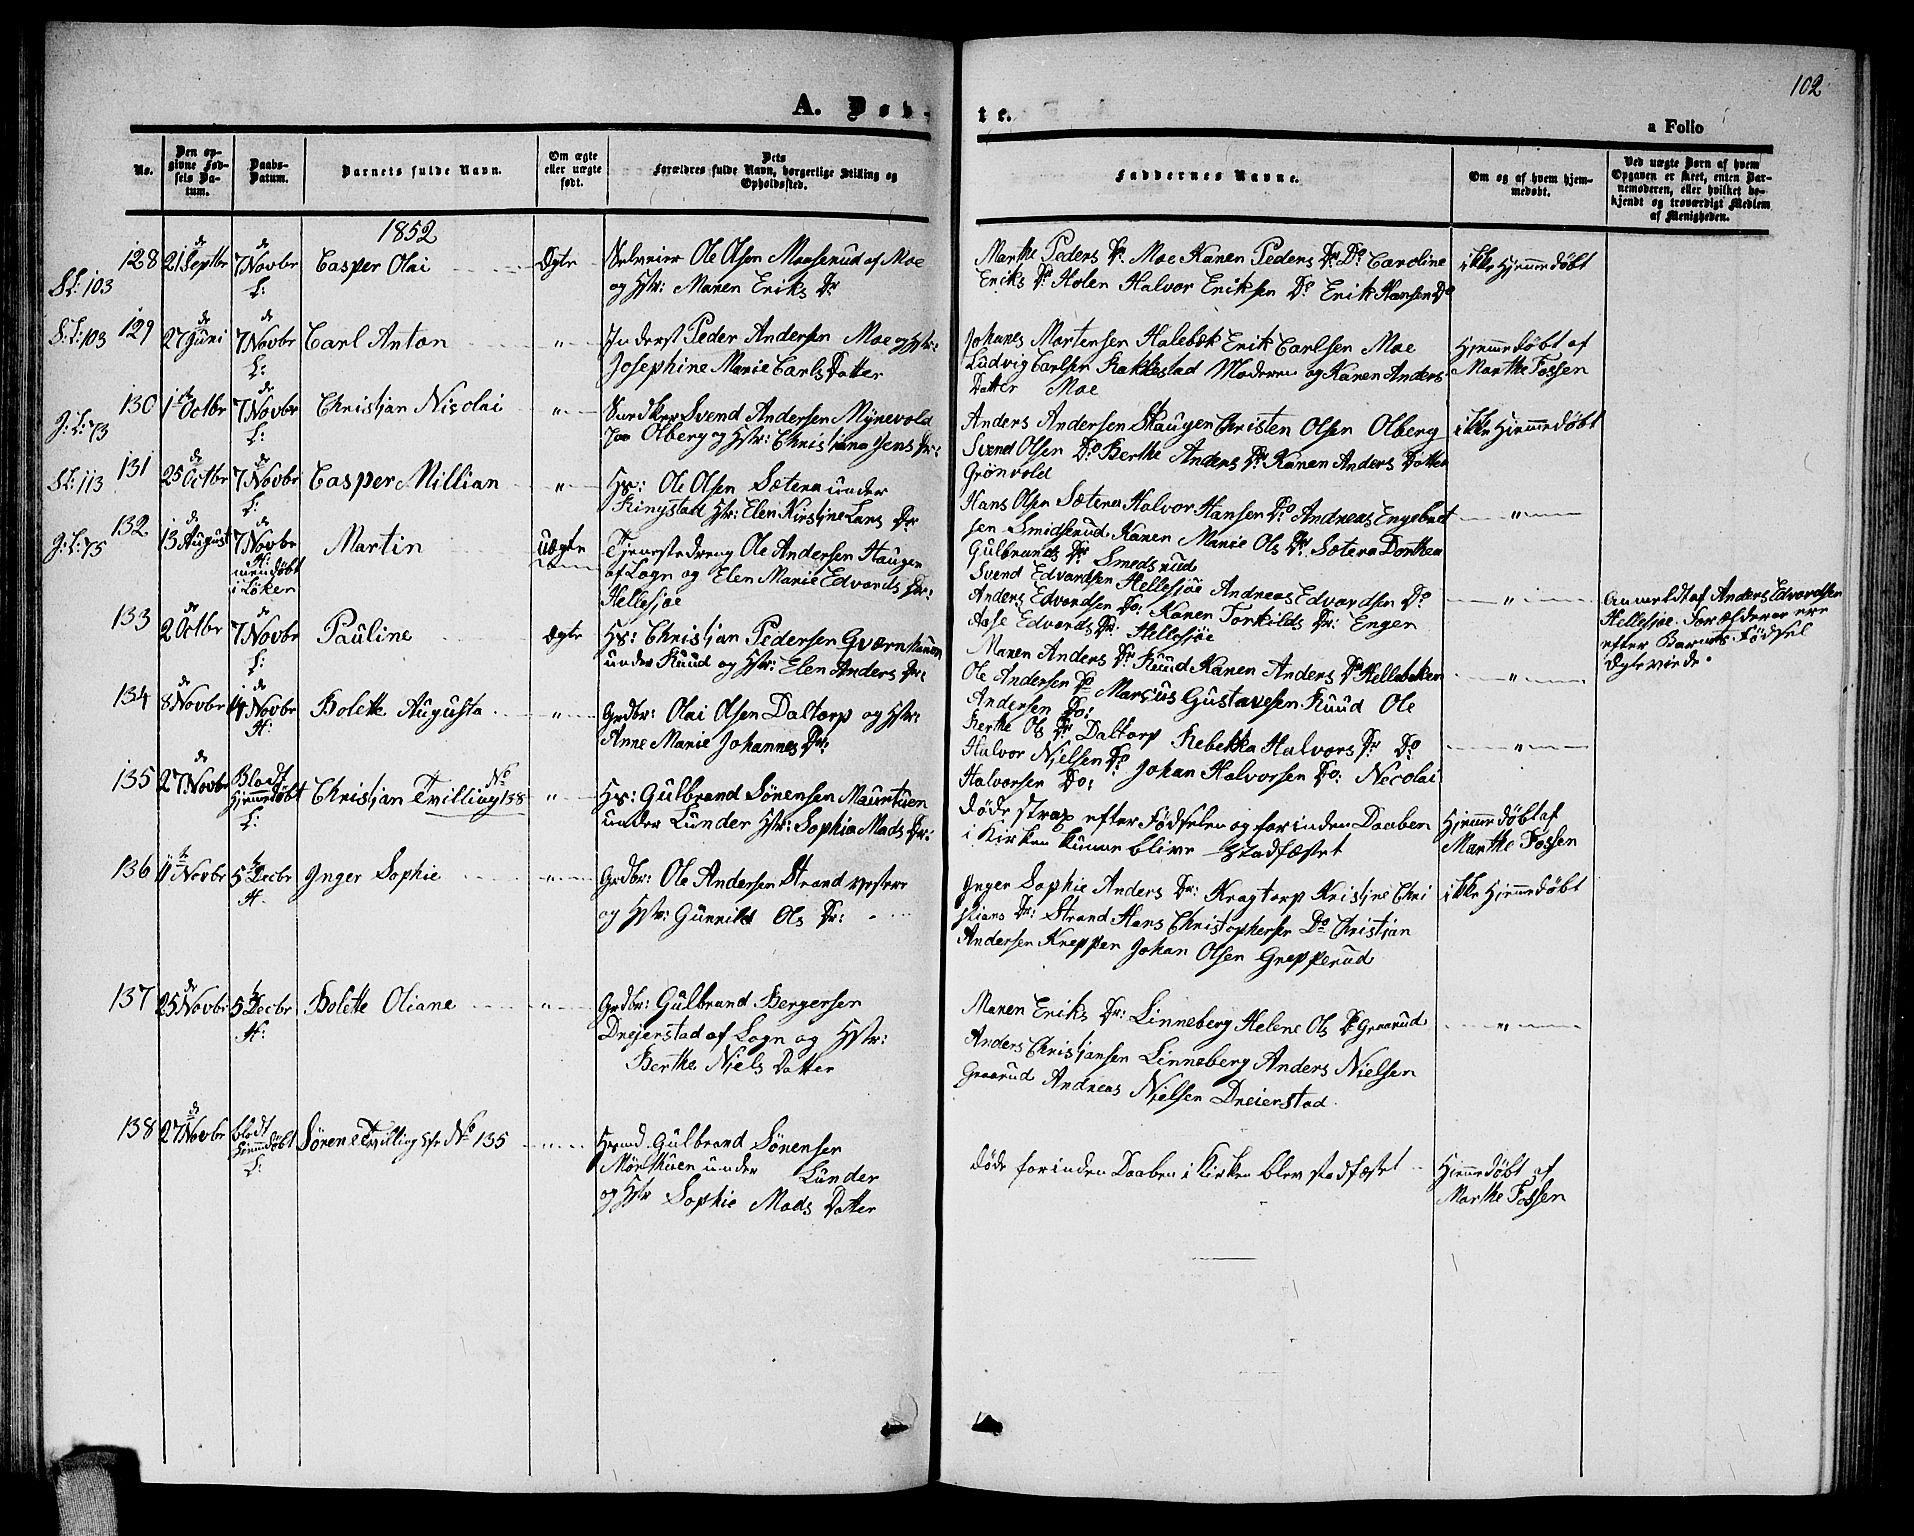 102
A. Døb-
te.
a Folio
No.
Den op-
givne Fød-
sels Da-
tum.
Daabs-
Datum.
Barnets fulde Navn.
Om ægte
eller uægte
født.
Dets
Forældres fulde Navn, borgerlige Stilling og
Opholdssted.
Faddernes Navne.
Om og af hvem hjem-
medøbt.
Ved uægte Børn af hvem
Opgaven er skeet, enten Bar-
nemoderen, eller hvilket be-
kjendt og troværdigt Medlem
af Menigheden.
1852
128 21de Septbr 7de Novbr Casper Olai Ægte Selveier Ole Olsen Manserud af Moe
S.L: 103 L: og Hstr: Maren Eriks Dr
Marthe Peders Dr. Moe Karen Peders Dr. Do Caroline
Eriks Dr Holen Halvor Eriksen Do Erik Hansen Do
ikke Hjemmedøbt
129 27de Juni 7de Novbr Carl Anton " Inderst Peder Andersen Moe og Hstr:
S.L: 103 L: Josephine Marie Carls Datter
Johanes Martensen Halebæk Erik Carlsen Moe
Ludvig Carlsen Rakkestad Moderen og Karen Anders
Datter Moe
Hjemmedøbt af
Marthe Fossen
130 1ste Octbr 7de Novbr Christjan Nicolai " Svend Andersen Mÿrevold
J: L: 73 L: Olberg og Hstr: Christiana Jens Dr:
Anders Andersen Skaugen Christen Olsen Olberg
Svend Olsen Do Berthe Anders Dr Karen Anders Datter
Grønvold
ikke Hjemmedøbt
131 25de Octbr 7de Novbr Casper Millian " Hs: Ole Olsen Sætera under
S.L: 113 L: Ringstad Hstr: Elen Kirstine Lars Dr
Hans Olsen Sætera Halvor Hansen Do Andreas Engebret
sen Smidsrud Karen Marie Ols Dr. Sætera Dorthea
Gulbrands Dr Smedsrud
"
132 13de August 7de Novbr Martin Uægte Tjenestedreng Ole Andersen Haugen
J: L: 75 H: af Sogn og Elen Marie Edvards Dr:
men døbt
i Løken
Hellesjøe
Svend Edvardsen Hellesjøe Andreas Edvardsen Do
Anders Edvardsen Do: Karen Torkilds Dr: Enger
Aase Edvards Dr: Hellesjøe
"
Anmeldt af Anders Edvardsen
Hellesjøe. Forældrene ere
efter Barnets Fødsel
Ægteviede.
133 2de Octbr 7de Novbr Pauline Ægte Hs: Christjan Pedersen Qværnhaugen
L: under Ruud og Hstr: Elen Anders Dr:
Maren Anders Dr Ruud Karen Anders Dr Hellebekken
Ole Andersen Do Marcus Gustavesen Ruud Ole
Andersen Do:
"
134 8de Novbr 14de Novbr Bolette Augusta " Grdbr: Olai Olsen Daltorp og Hstr:
H: Anne Marie Johannes Dr:
Berthe Ols Dr: Daltorp Rebekka Halvors Dr Do
Halvor Nielsen Do Johan Halvorsen Do: Necolai
Halvorsen Do:
"
135 27de Novbr Blodt
Hjemmedøbt
L: Christjan Tvilling No 138 " Hs: Gulbrand Sørensen Maurtuen
under Lunder Hstr: Sophia Mads Dr:
døde strax efter Fødselen og forinden Daaben
i Kirken kunne blive Stadfæstet
Hjemmedøbt af
Marthe Fossen
136 11te Novbr 5te Decbr Inger Sophie " Grdbr: Ole Andersen Strand vestere
H. og Hstr: Gunnild Ols Dr:
Inger Sophie Anders Dr: Kragtorp Kristine Chri
stians Dr: Strand Hans Christophersen Do Christjan
Andersen Kreppen Johan Olsen Grepperud
ikke Hjemmedøbt
137 25de Novbr 5te Decbr Bolette Oliane " Grdbr: Gulbrand Bergersen
H: Drejerstad af Sogn og Hstr:
Berthe Niels Datter
Maren Eriks Dr: Linneberg Helene Ols Dr Graarud
Anders Christjansen Linneberg Anders Nielsen
Graarud Andreas Nielsen Dreierstad
"
138 27de Novbr blodt
hjemmdøbt
L: Sørene Tvilling No 135 " Hsmd. Gulbrand Sørensen
Mørthuen under Lunder
og Hstr Sophie Mads Datter
døde forinden Daaben i Kirken blev stadfæstet
Hjemmedøbt af
Marthe Fossen